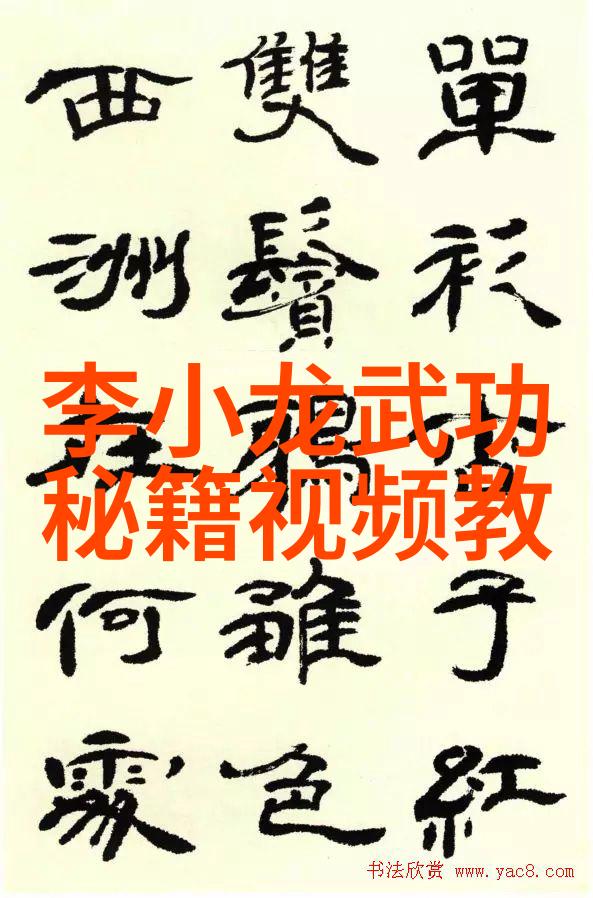 單衫杏子紅
雙鬢鴉雛色
西洲在何處
李小龙武功
秘籍视频教
书法欣赏 www.yac8.com